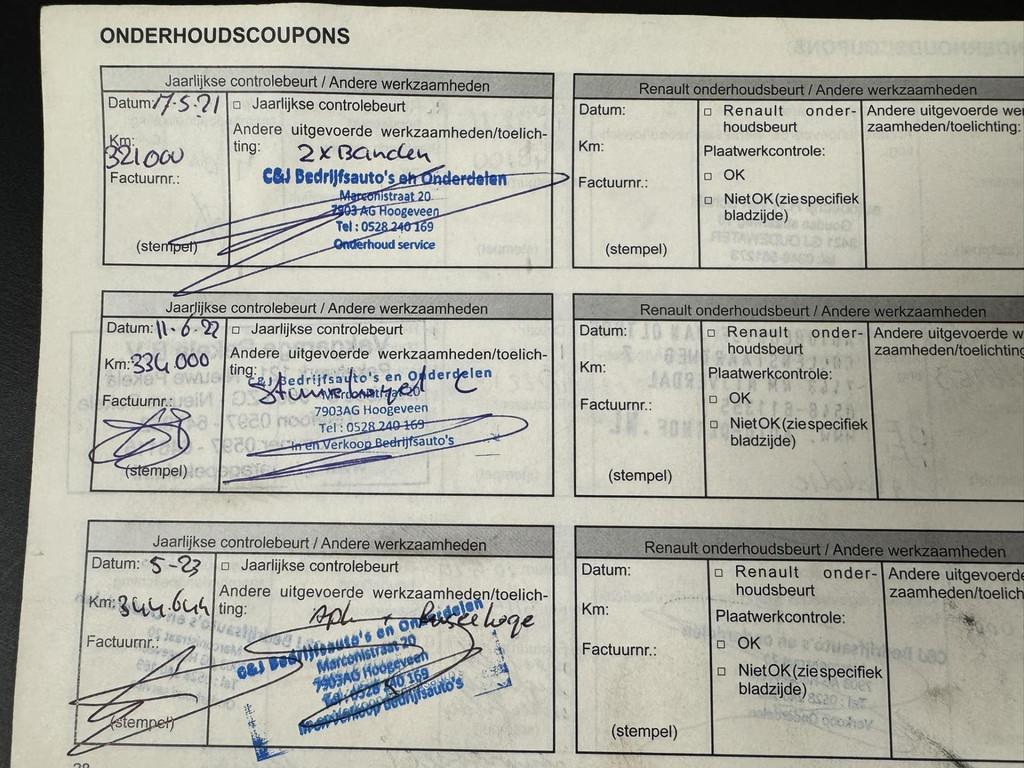 ONDERHOUDSCOUPONS
Jaarlijkse controlebeurt / Andere werkzaamheden
Datum: 17-5-21
□ Jaarlijkse controlebeurt
Km: 321000
Andere uitgevoerde werkzaamheden/toelich-
ting: 2x Banden
Factuurnr.:
C&J Bedrijfsauto's en Onderdelen
Marconistraat 20
7903 AG Hoogeveen
Tel : 0528 240 169
Onderhoud service
(stempel)
Renault onderhoudsbeurt / Andere werkzaamheden
Datum:
□ Renault onder-
houdsbeurt
Andere uitgevoerde we
zaamheden/toelichting:
Km:
Plaatwerkcontrole:
□ OK
Factuurnr.:
□ Niet OK (zie specifiek
bladzijde)
(stempel)
Jaarlijkse controlebeurt / Andere werkzaamheden
Datum: 11-6-22
□ Jaarlijkse controlebeurt
Km: 334.000
Andere uitgevoerde werkzaamheden/toelich-
ting:
C&J Bedrijfsauto's en Onderdelen
Marconistraat 20
7903AG Hoogeveen
Tel : 0528 240 169
In en Verkoop Bedrijfsauto's
Factuurnr.:
(stempel)
Renault onderhoudsbeurt / Andere werkzaamheden
Datum:
□ Renault onder-
houdsbeurt
Andere uitgevoerde w
zaamheden/toelichting
Km:
Plaatwerkcontrole:
□ OK
Factuurnr.:
□ Niet OK (zie specifiek
bladzijde)
(stempel)
Jaarlijkse controlebeurt / Andere werkzaamheden
Datum: 5-23
□ Jaarlijkse controlebeurt
Km: 344.644
Andere uitgevoerde werkzaamheden/toelich-
ting: Apk +
C&J Bedrijfsauto's en Onderdelen
Marconistraat 20
7903AG Hoogeveen
Tel : 0528 240 169
In en Verkoop Bedrijfsauto's
Factuurnr.:
(stempel)
Renault onderhoudsbeurt / Andere werkzaamheden
Datum:
□ Renault onder-
houdsbeurt
Andere uitgevoerde
zaamheden/toelich
Km:
Plaatwerkcontrole:
□ OK
Factuurnr.:
□ Niet OK (zie specifiek
bladzijde)
(stempel)